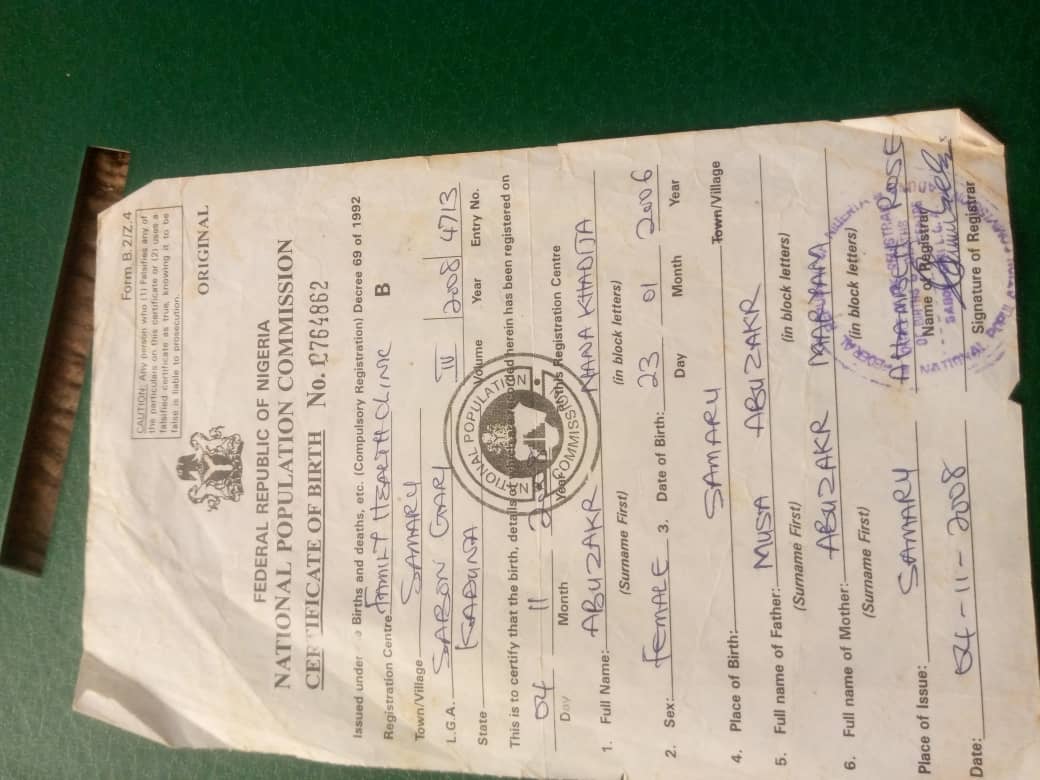 Form B.2/Z.4
CAUTION: Any person who (1) Falsifies any of
the particulars on this certificate or (2) uses a
falsified certificate as true, knowing it to be
false is liable to prosecution.
ORIGINAL
FEDERAL REPUBLIC OF NIGERIA
NATIONAL POPULATION COMMISSION
CERTIFICATE OF BIRTH No. £764862
Issued under Births and deaths, etc. (Compulsory Registration) Decree 69 of 1992
Registration Centre FAMILY HEALTH CLINIC B
Town/Village SAMARU
L.G.A. SABON GARI IV 2008 4713
State KADUNA Volume Year Entry No.
This is to certify that the birth, details of herein has been registered on
04 11
Day Month Year this Registration Centre
NATIONAL POPULATION COMMISSION
1. Full Name: ABUZAKR NANA KHADIJA
(Surname First) (in block letters)
2. Sex: FEMALE 3. Date of Birth: 23 01 2006
Day Month Year
4. Place of Birth: SAMARU Town/Village
5. Full name of Father: MUSA ABUZAKR
(Surname First) (in block letters)
6. Full name of Mother: ABUZAKR MARYAM
(Surname First) (in block letters)
Place of Issue: SAMARU ROSE
Name of Registrar
Date: 04-11-2008
Signature of Registrar